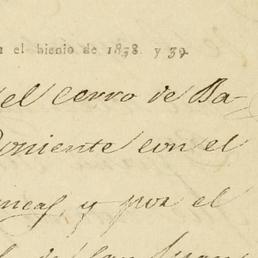 el bienio de 1838 y 39.
el cerro de Ba-
Poniente con el
y por el